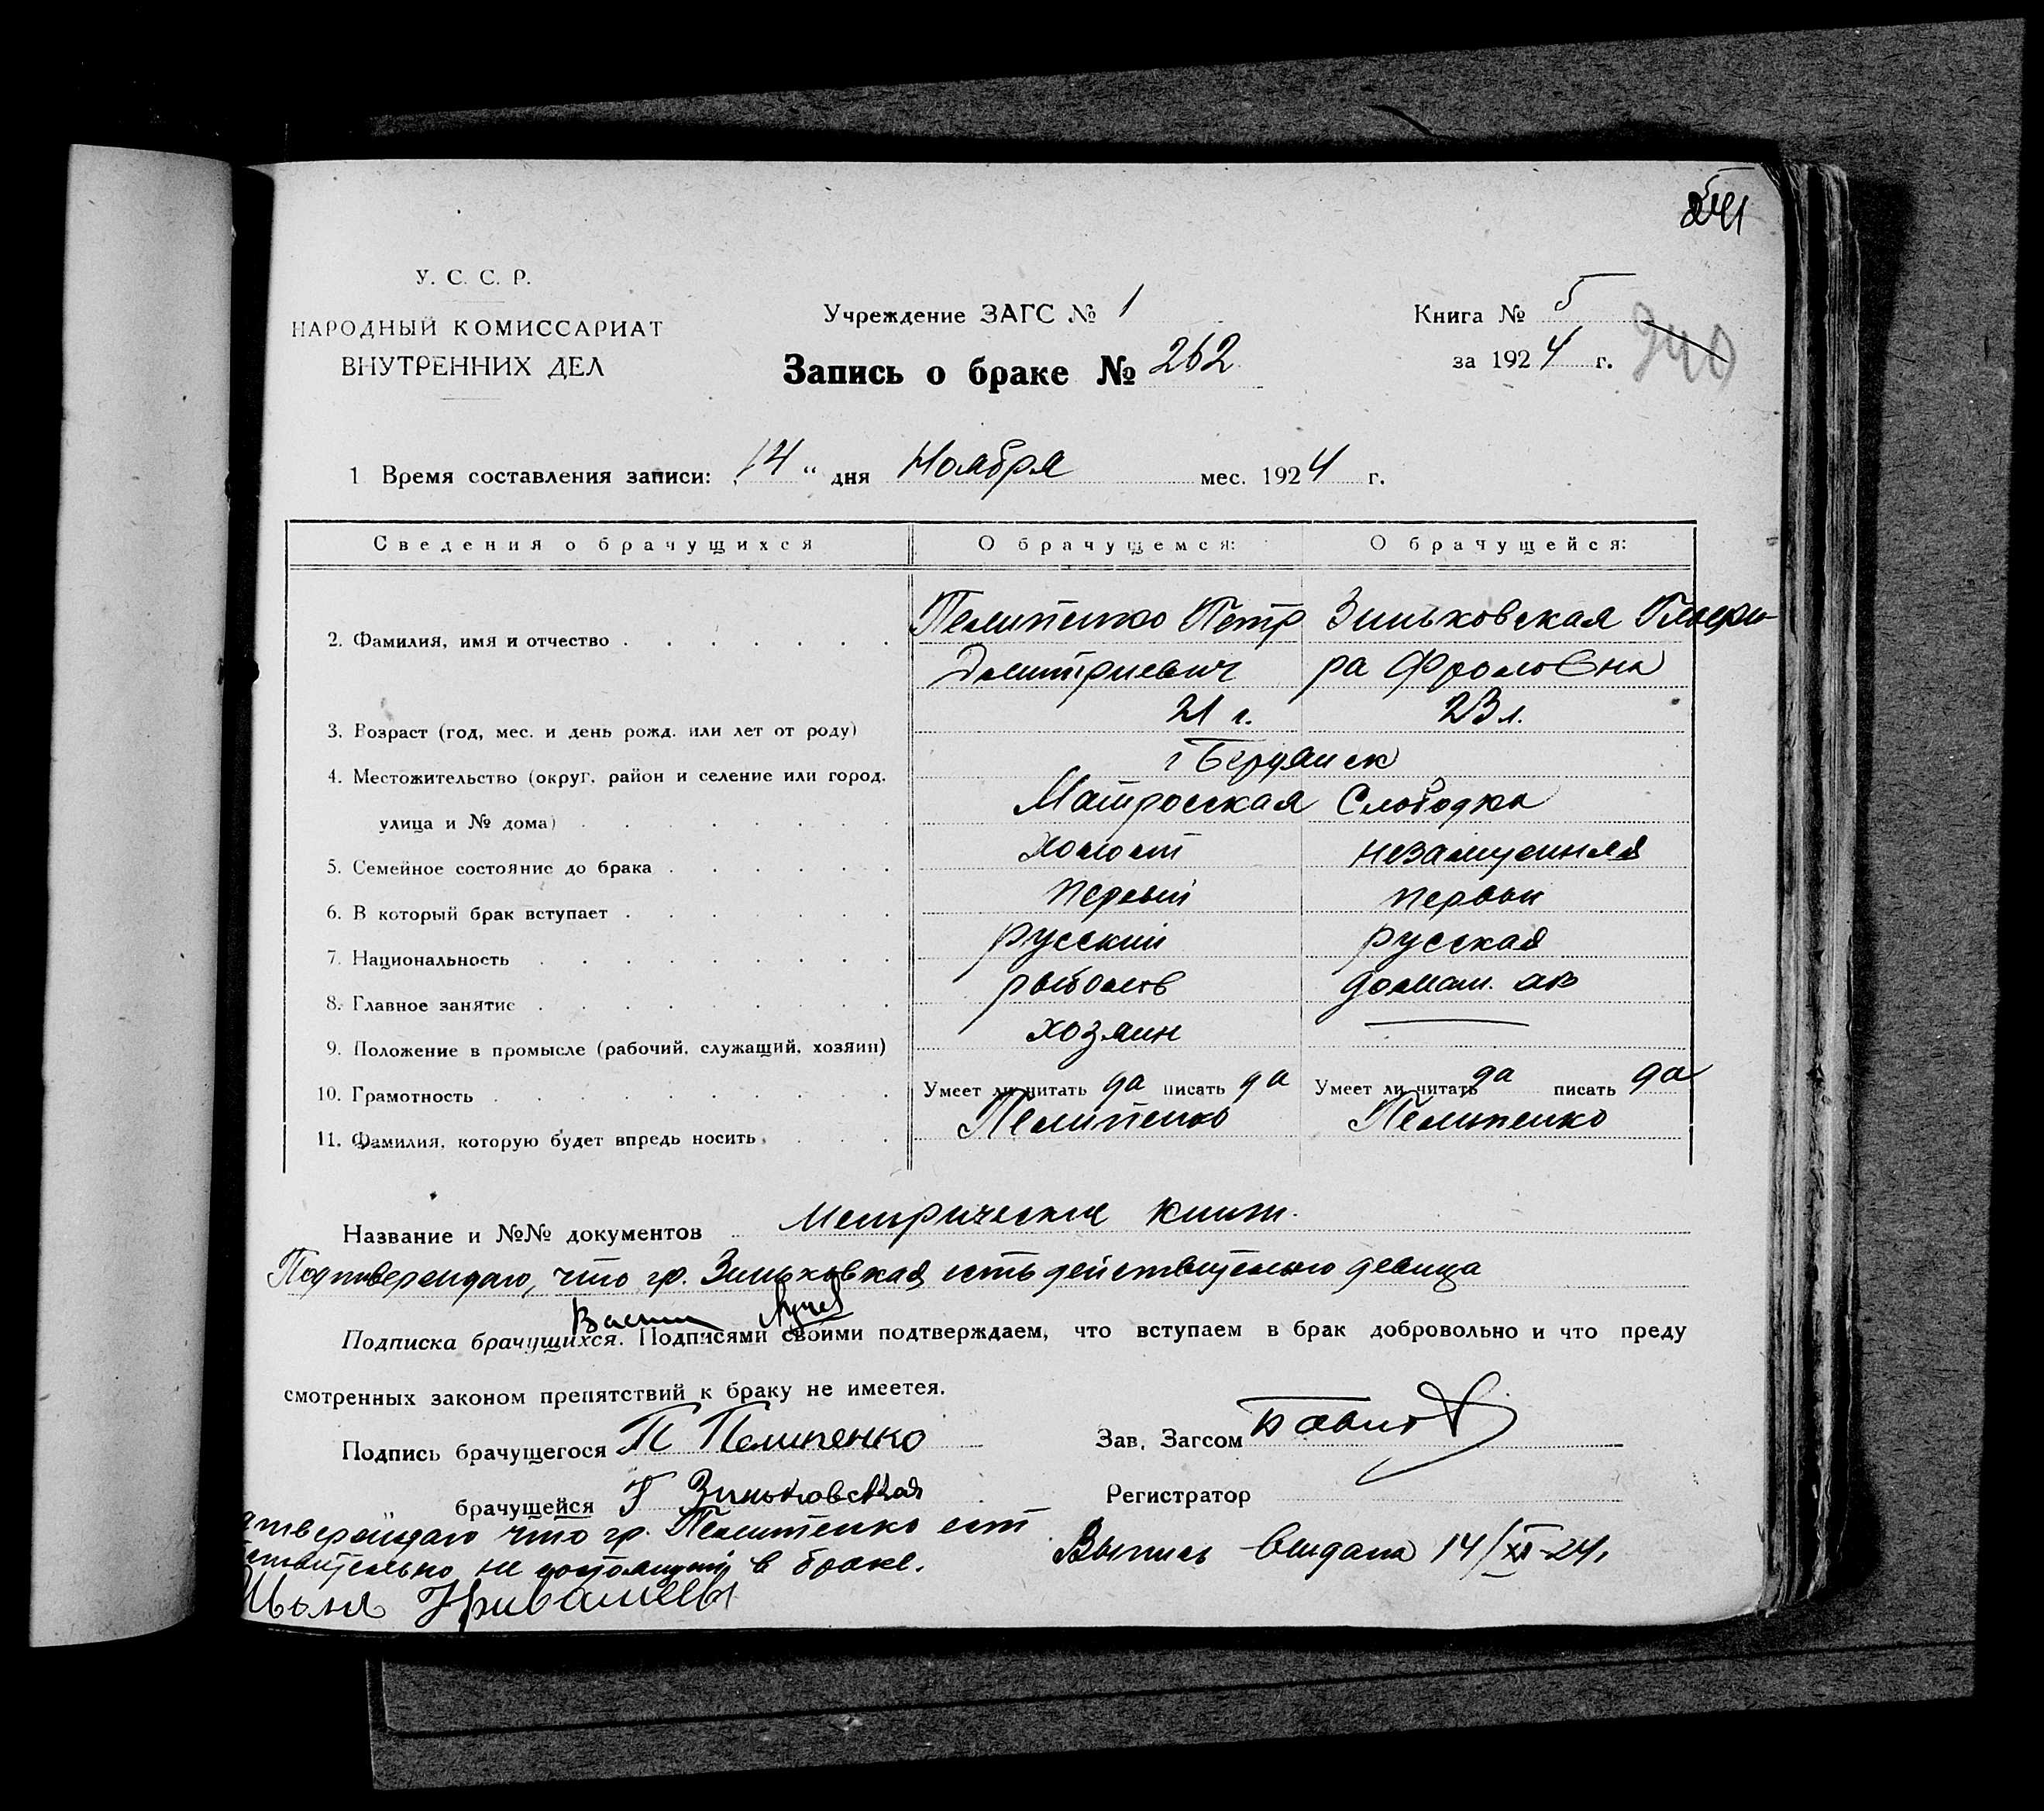 241
У. С. С. Р.
НАРОДНЫЙ КОМИССАРИАТ
ВНУТРЕННИХ ДЕЛ
Учреждение ЗАГС № 1
Запись о браке № 262
Книга № 5
за 1924 г.
240
1 Время составления записи: 14 " дня Ноября мес. 1924 г.
Сведения о брачущихся О брачущемся: О брачущейся:
2. Фамилия, имя и отчество Пелипенко Петр Зиньковская Гликери-
Дмитриевич ра Фроловна
3. Возраст (год, мес. и день рожд. или лет от роду) 21 г. 23 л.
4. Местожительство (округ, район и селение или город, г Бердянск
улица и № дома) Матросская Слободка
5. Семейное состояние до брака холост незамужняя
6. В который брак вступает первый первый
7. Национальность русский русская
8. Главное занятие рыболов домаш.
9. Положение в промысле (рабочий, служащий, хозяин) хозяин
10. Грамотность Умеет ли читать да писать да Умеет ли читать да писать да
11. Фамилия, которую будет впредь носить Пелипенко Пелипенко
Название и №№ документов Метрическия книги.
Подтверждаю, что гр. Зиньховская есть действительно девица
Подписка брачущихся. Подписями своими подтверждаем, что вступаем в брак добровольно и что преду
смотренных законом препятствий к браку не имеетея.
Подпись брачущегося П Пелипенко Зав. Загсом
брачущейся Г Зиньковская Регистратор
тверждаю что гр. Пелипенко ест
ствительно не состоящий в браке.
Выпись выдана 14/XI-24.